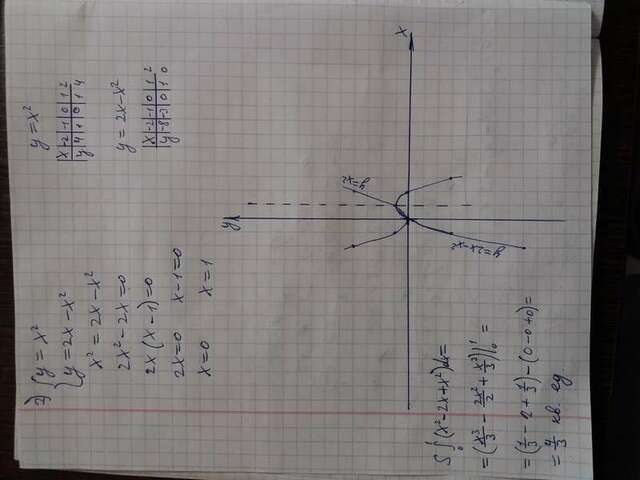 2) { y = x²
y = 2x - x²
x² = 2x - x²
2x² - 2x = 0
2x (x - 1) = 0
2x = 0 x - 1 = 0
x = 0 x = 1
y = x²
x | -2 | -1 | 0 | 1 | 2
y | 4 | 1 | 0 | 1 | 4
y = 2x - x²
x | -2 | -1 | 0 | 1 | 2
y | -8 | -3 | 0 | 1 | 0
y
x
y=x²
y=2x-x²
S ∫₀¹ (x² - 2x + x²) dx =
= (x³/3 - 2x²/2 + x³/3) |₀¹ =
= (1/3 - 2 + 1/3) - (0 - 0 + 0) =
= 4/3 кв. ед